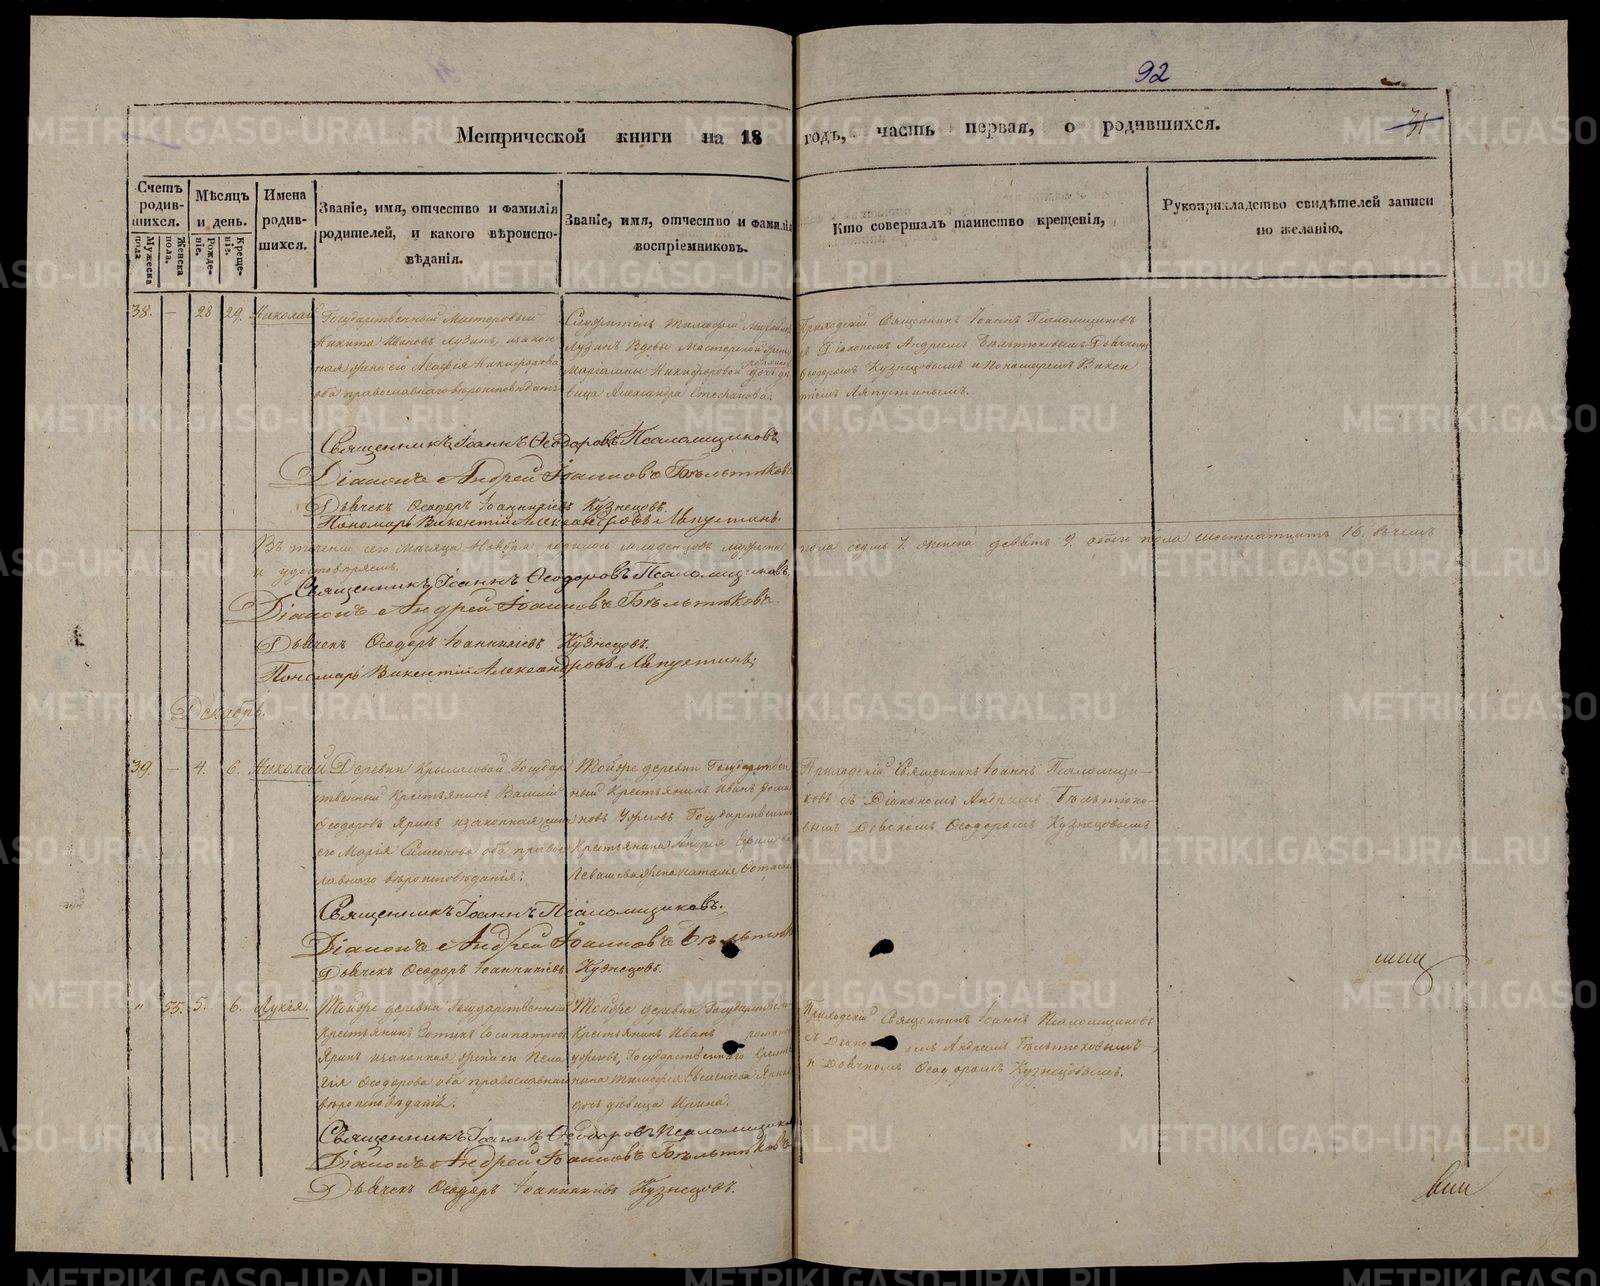 92
31
Метрической книги на 18 годъ, часть первая, о родившихся.
Счетъ родившихся.
Мужеска пола
Женска пола.
Мѣсяцъ и день.
Рожденіе.
Крещеніе.
Имена родившихся.
Званіе, имя, отчество и фамилія
родителей, и какого вѣроиспо-
вѣданія.
Званіе, имя, отчество и фамилія
воспріемниковъ.
Кто совершалъ таинство крещенія,
Рукоприкладство свидѣтелей записи
по желанію.
38. — 28 29. Николай
Государственный Мастеровый
Никита Ивановъ Лузинъ, закон
ная жена его Агафія Никифорова
оба православнаго вѣроисповѣданія
Служитель Тимофей Михайловъ
Лузинъ Вдовы Мастерской жены
Никифоровой дочь де
вица Александра Стефанова.
Приходскій Священникъ Іоаннъ Псаломщиковъ
съ Діакономъ Андреемъ Бѣльтюковымъ Дьячкомъ
Ѳеодоромъ Кузнецовымъ и Пономаремъ Викен
тіемъ Ляпустинымъ.
Священникъ Іоаннъ Ѳеодоровъ Псаломщиковъ.
Діаконъ Андрей Іоанновъ Бѣльтюковъ
Дьячекъ Ѳеодоръ Іоанникіевъ Кузнецовъ.
Пономарь Викентій Александровъ Ляпустинъ.
Въ теченіи сего мѣсяца Ноября родилось младенцовъ мужеска пола седмь 7. женска девять 9. обоего пола шестнатцать 16. въ чемъ
и удостовѣряемъ.
Священникъ Іоаннъ Ѳеодоровъ Псаломщиковъ.
Діаконъ Андрей Іоанновъ Бѣльтюковъ
Дьячекъ Ѳеодоръ Іоанникіевъ Кузнецовъ.
Пономарь Викентій Александровъ Ляпустинъ;
Декабрь.
39. — 4. 6. Николай
Деревни Крыласовой Государ
ственный Крестьянинъ Василій
Ѳеодоровъ Яринъ и законная жена
его Марія Симеонова оба право
славнаго вѣроисповѣданія;
Тойже деревни Государствен
ный Крестьянинъ Иванъ Рома
новъ Государственнаго
Крестьянина Андрея
жена Наталія
Приходскій Священникъ Іоаннъ Псаломщи-
ковъ съ Діакономъ Андреемъ Бѣльтюко-
вымъ Дьячкомъ Ѳеодоромъ Кузнецовымъ
Священникъ Іоаннъ Псаломщиковъ.
Діаконъ Андрей Іоанновъ Бѣльтюковъ
Дьячекъ Ѳеодоръ Іоанникіевъ Кузнецовъ.
" 55. 5. 6. Лукія.
Тойже деревни Государственный
Крестьянинъ Сосипатровъ
Яринъ и законная жена его Пела
гія Ѳеодорова оба православнаго
вѣроисповѣданія.
Тойже деревни Государственный
Крестьянинъ Иванъ Романовъ
Государственнаго Крестья
нина Тимофея Ярина
дочь дѣвица Ирина.
Приходскій Священникъ Іоаннъ Псаломщиковъ
съ Діакономъ Андреемъ Бѣльтюковымъ
и Дьячкомъ Ѳеодоромъ Кузнецовымъ.
Священникъ Іоаннъ Ѳеодоровъ Псаломщиковъ
Діаконъ Андрей Іоанновъ Бѣльтюковъ
Дьячекъ Ѳеодоръ Іоанникіевъ Кузнецовъ.
METRIKI.GASO-URAL.RU